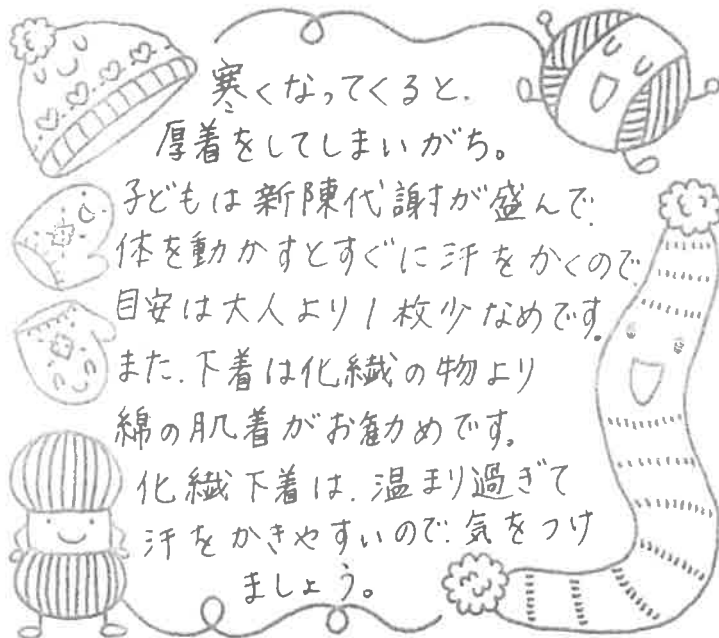 寒くなってくると、
厚着をしてしまいがち。
子どもは新陳代謝が盛んで、
体を動かすとすぐに汗をかくので、
目安は大人より1枚少なめです。
また、下着は化繊の物より
綿の肌着がお勧めです。
化繊下着は、温まり過ぎて
汗をかきやすいので、気をつけ
ましょう。